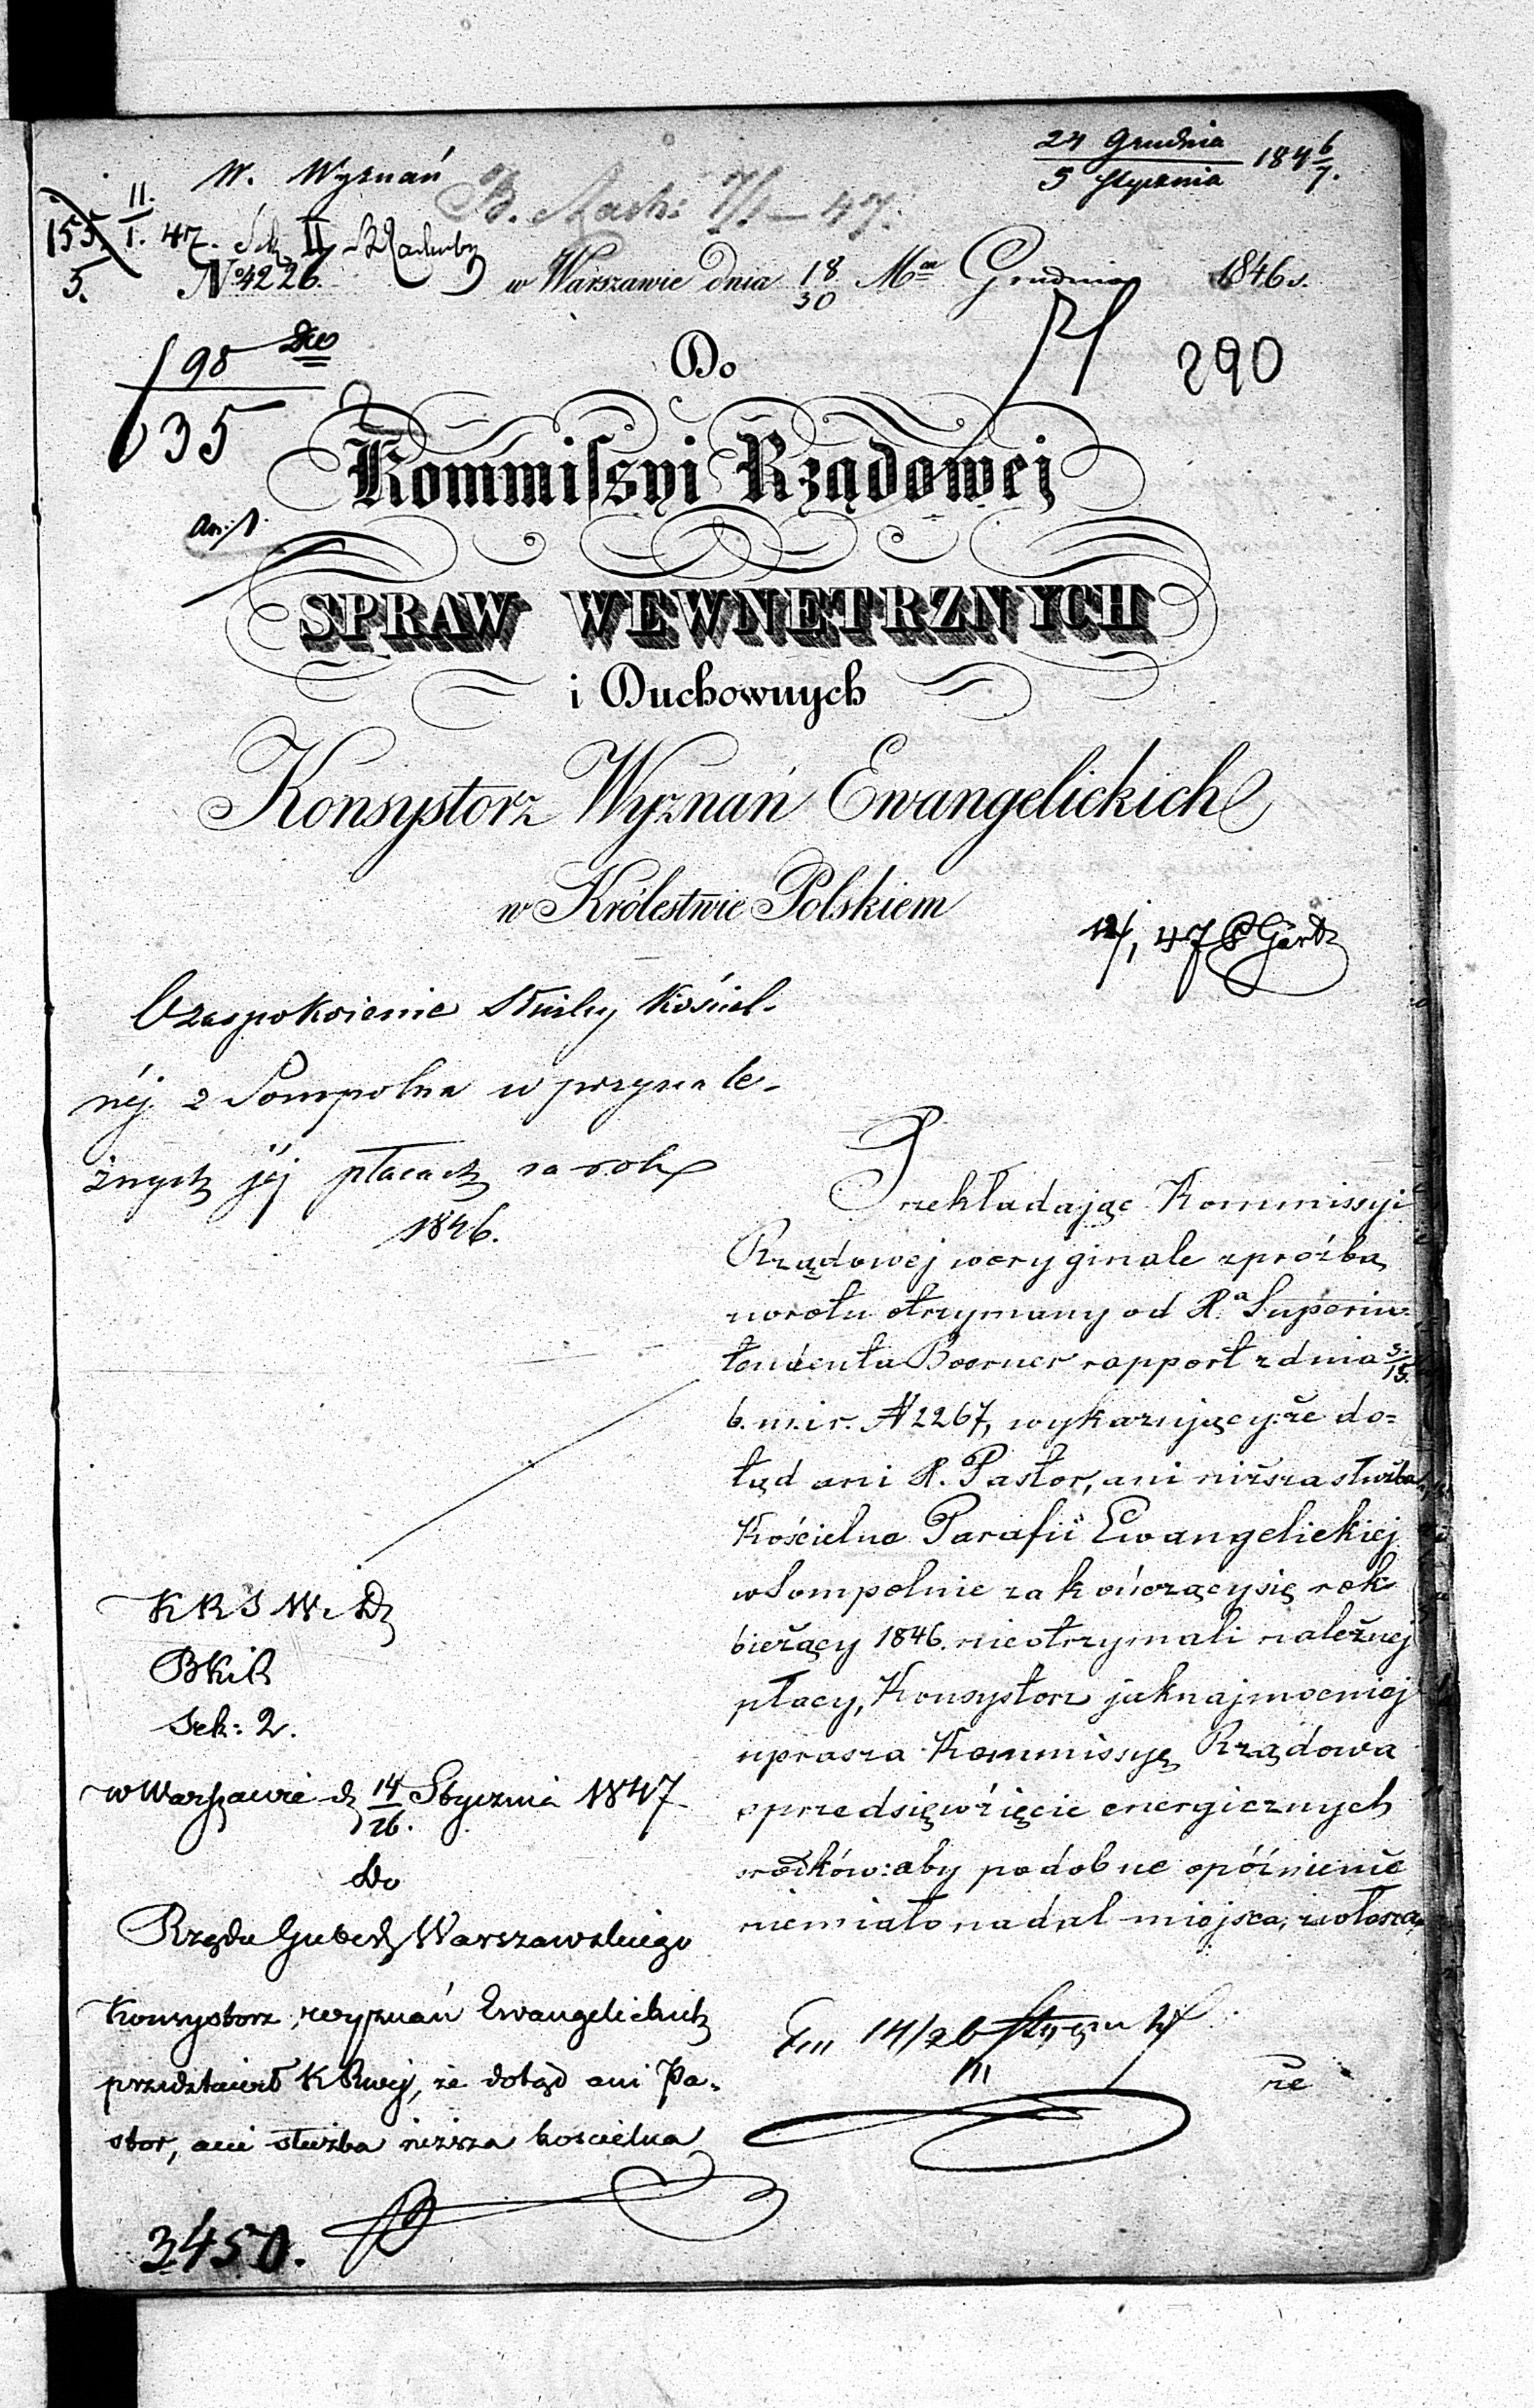 24 Grudnia
5 Stycznia 184 6/7.
W. Wyznań
II.
155 I. 47. II
5.
No 4226.
B. Rach: 7/1 – 47.
w Warszawie dnia 18/30 Mca Grudnia 1846 r.
98
35
290
Do
Kommissyi Rządowej
An: 1.
SPRAW WEWNĘTRZNYCH
i Duchownych
Konsystorz Wyznań Ewangelickich
w Królestwie Polskiem
12/1 47
O zaspokoienie służby kościel-
néj z Sompolna w przynale-
żnych jéj płacach za rok
1846.
Przekładając Kommissyi
Rządowej w oryginale z prośbą
zwrotu otrzymany od Xa Superin-
tendenta Boerner rapport z dnia 3/15.
b. m. i r. N 2267, wykazujący: że do=
tąd ani X. Pastor, ani niższa służba
Kościelna Parafii Ewangelickiej
w Sompolnie za kończący się rok
bieżący 1846. nie otrzymali należnej
płacy, Konsystorz jaknajmocniej
uprasza Kommissyę Rządową
o przedsięwzięcie energicznych
środków: aby podobne opóźnienie
niemiało nadal miejsca, zwłaszcza
że
K R S W. i D
B K i R
Sek: 2.
w Warszawie d 14/26. Stycznia 1847
Do
Rządu Guber. Warszawskiego
Konsystorz wyznań Ewangelickich
przedstawił K Rwej, że dotąd ani Pa-
stor, ani służba niższa kościelna
14/26 Stycznia 47
3450.